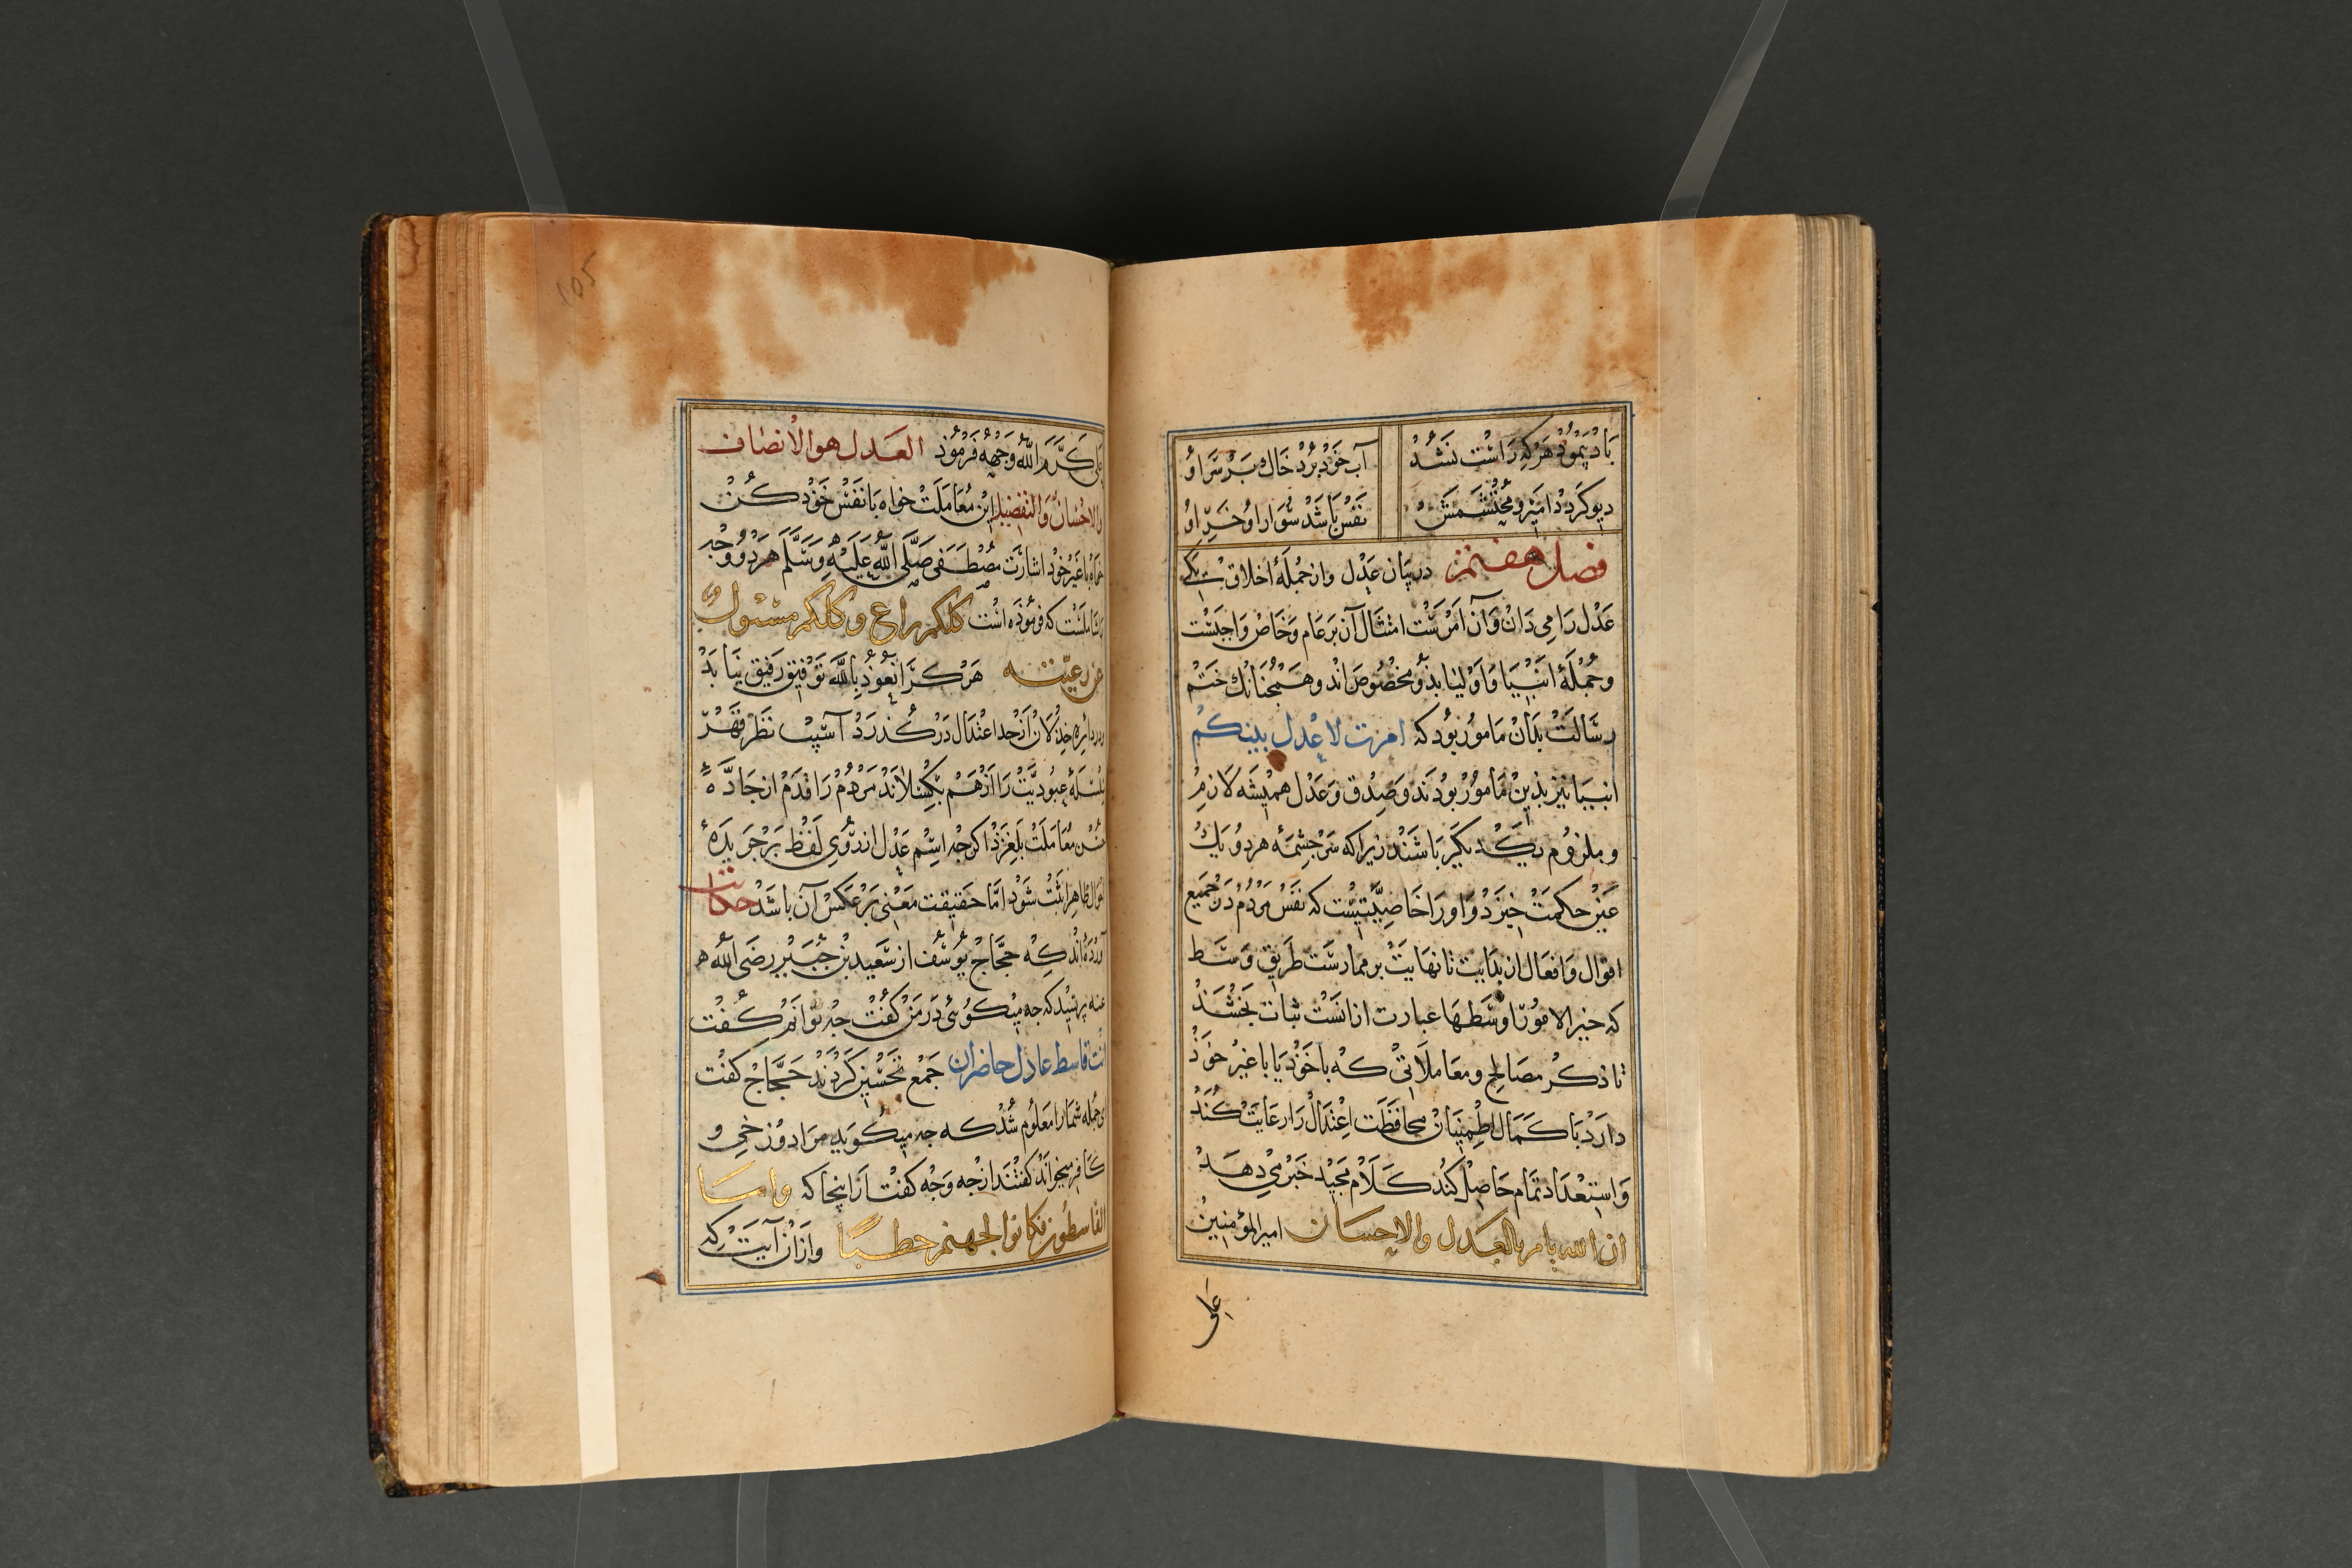 باد پیمود هر که راست نشد آب خود برد خاک بر سر او
دیو کردد امیر و محتشمش نفس باشد سوار او خر او
فصل هفتم در بیان عدل وان جمله اخلاق یکی
عدل را می دان وآن امرست امتثال آن بر عام وخاص واجبست
وجمله انبیا واولیا بذو مخصوص اند وهمجنانک ختم
رسالت بدان مامور بود که امرت لاعدل بینکم
انبیا نیز بذین مامور بودند وصدق وعدل همیشه لازم
وملزوم یکدیکر باشند زیرا که سرجشمه هر دو یک
عین حکمت خیزد واورا خاصیتیست که نفس مردم در جمیع
اقوال وافعال از بدایت تا نهایت بر ممارست طریق وسط
که خیر الامور اوسطها عبارت ازانست ثبات بخشذ
تا ذکر مصالح ومعاملاتی که با خوذ یا با غیر خوذ
دارد با کمال اطمینان محافظت اعتدال را رعایت کند
واستعداد تمام حاصل کند کلام مجید خبر می دهد
ان الله یامر بالعدل والاحسان امیر المؤمنین
علی
105
علی کرم الله وجهه فرموذ العدل هو الانصاف
والاحسان والتفضیل این معاملت خواه با نفس خوذ کن
خواه با غیر خوذ اشارت مصطفی صلی الله علیه وسلم هر دو وجه
را شاملست که فرموذه است کلکم راع وکلکم مسئول
عن رعیته هر کرا نعوذ بالله توفیق رفیق نیابد
ودر دایره خذلان از حد اعتدال در کذرد آسیب نظر قهر
سلسله عبودیت را از هم بکسلاند مردم را قدم از جاده
معاملت بلغزذ اکرجه اسم عدل از روی لفظ بر جریده
احوال ظاهر ثبت شود اما حقیقت معنی بر عکس آن باشد حکایت
آورده اند که حجاج یوسف از سعید بن جبیر رضی الله
عنه پرسید که جه میکوئی در من کفت جه توانم کفت
انت قاسط عادل حاضران جمع تحسین کردند حجاج کفت
جمله شمارا معلوم شد که جه میکوید مرا دوزخی و
کافر میخواند کفتند از جه وجه کفت ازاینجا که واما
القاسطون فکانوا لجهنم حطبا وازان آیت که